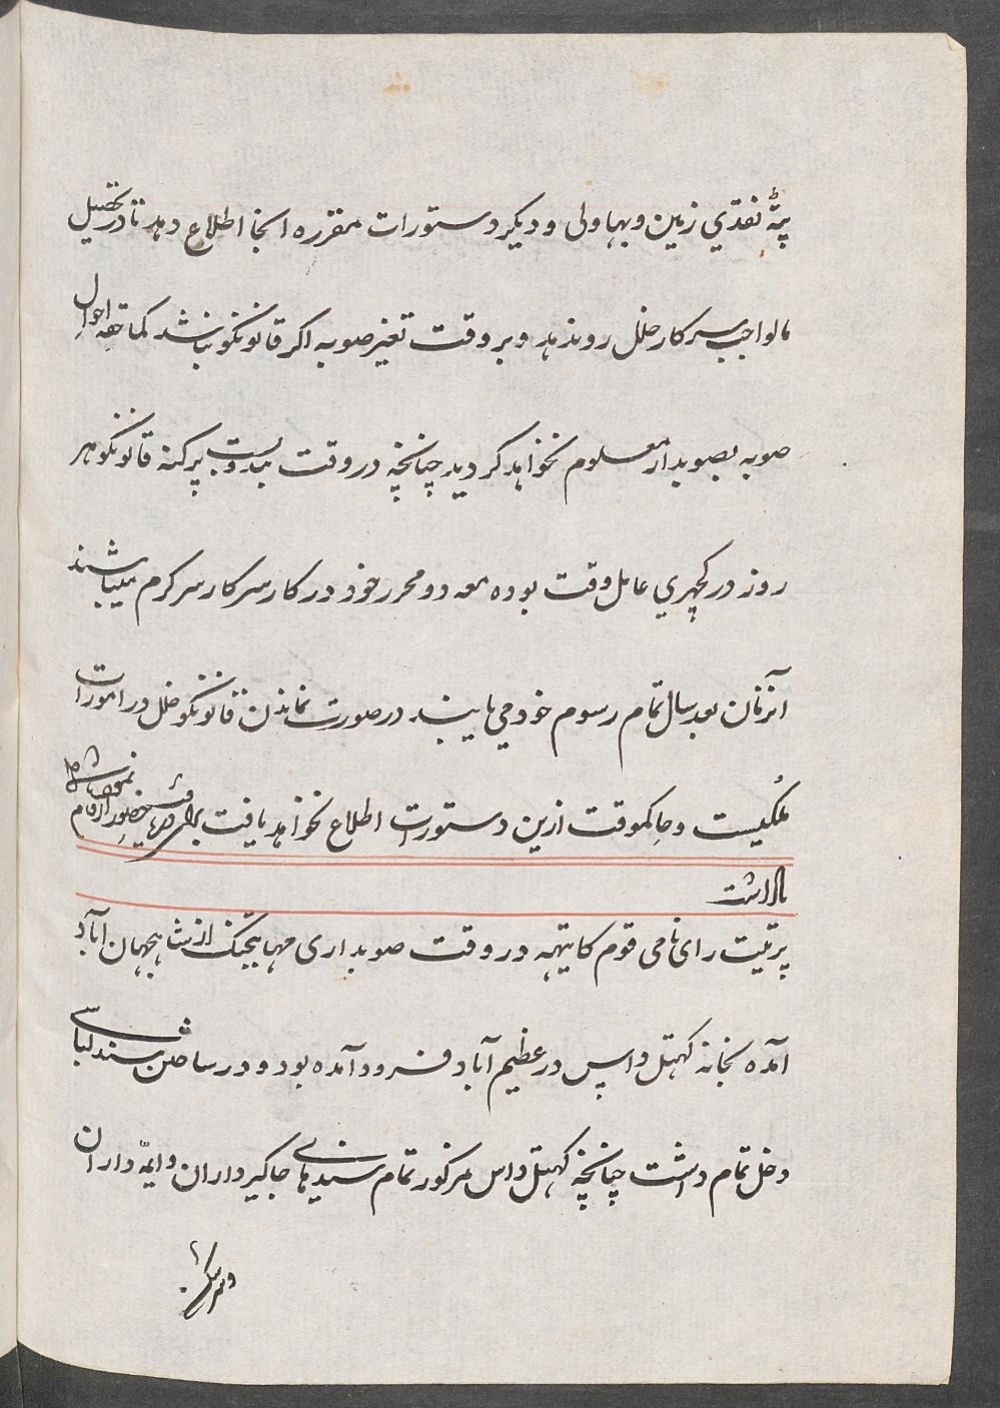 پتّه نقدّي زمين و بهاولى و ديكر دستورات مقرره انجا اطلاع دهد تا در تحصيل
مالواجب سركار خلل روندهد و بر وقت تغير صوبه اكر قانونكو نباشد كماحقه احوال
صوبه بصوبدار معلوم نخواهد كرديد چنانچه در وقت بندوبست پركنه قانونكو هر
روز در كچهري عامل وقت بوده معه دو محرر خود در كار سركار سركرم ميباشند
آنزمان بعد سال تمام رسوم خود مي يابند در صورت نماندن قانونكو خلل در امورات
ملكيست و حاكموقت ازين دستورات اطلاع نخواهد يافت براى حضور ارقام نمود
داشت
پرتيت راى نامى قوم كايتهه در وقت صوبدارى مهابتجنك از شاهجهان اباد
آمده بخانه كهتل داس در عظيم آباد فرود آمده بود و در ساختن سند لباسى
دخل تمام داشت چنانچه كهتل داس مذكور تمام سندهاى جاكيرداران و ايمّه داران